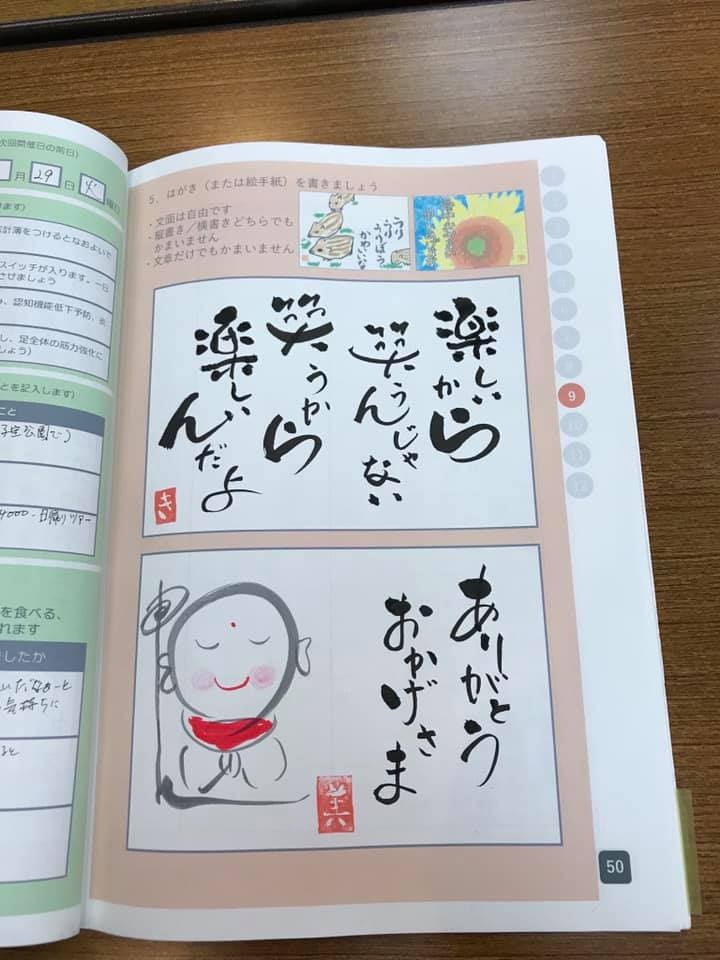 次回開催日の前日)
月 29 日 火 曜日
ます)
計簿をつけるとなおよいで
スイッチが入ります。一日
させましょう
み、認知機能低下予防、炎
し、足全体の筋力強化に
しょう)
とを記入します)
こと
4000-日帰りツアー
を食べる、
れます
したか
気持ちに
5、はがき（または絵手紙）を書きましょう
・文面は自由です
・縦書き／横書きどちらでも
かまいません
・文章だけでもかまいません
うり
うり
うりぼう
かわいいな
楽しいから
笑うんじゃない
笑うから
楽しいんだよ
き
ありがとう
おかげさま
9
10
11
12
50